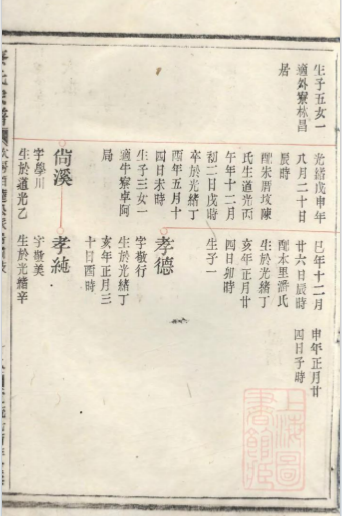 生子五女一
適外寮林昌
居
光緒戊申年
八月二十日
辰時
配朱厝坟陳
氏生道光丙
午年十二月
初二日戌時
卒於光緒丁
酉年五月十
四日未時
生子三女一
適牛寮卓阿
局
尙溪
字學川
生於道光乙
巳年十二月
廿六日辰時
配木里潘氏
生於光緒丁
亥年正月廿
四日卯時
生子一
孝德
字敬行
生於光緒丁
亥年正月三
十日酉時
孝純
字敬美
生於光緒辛
申年正月廿
四日子時
上海圖
書館藏